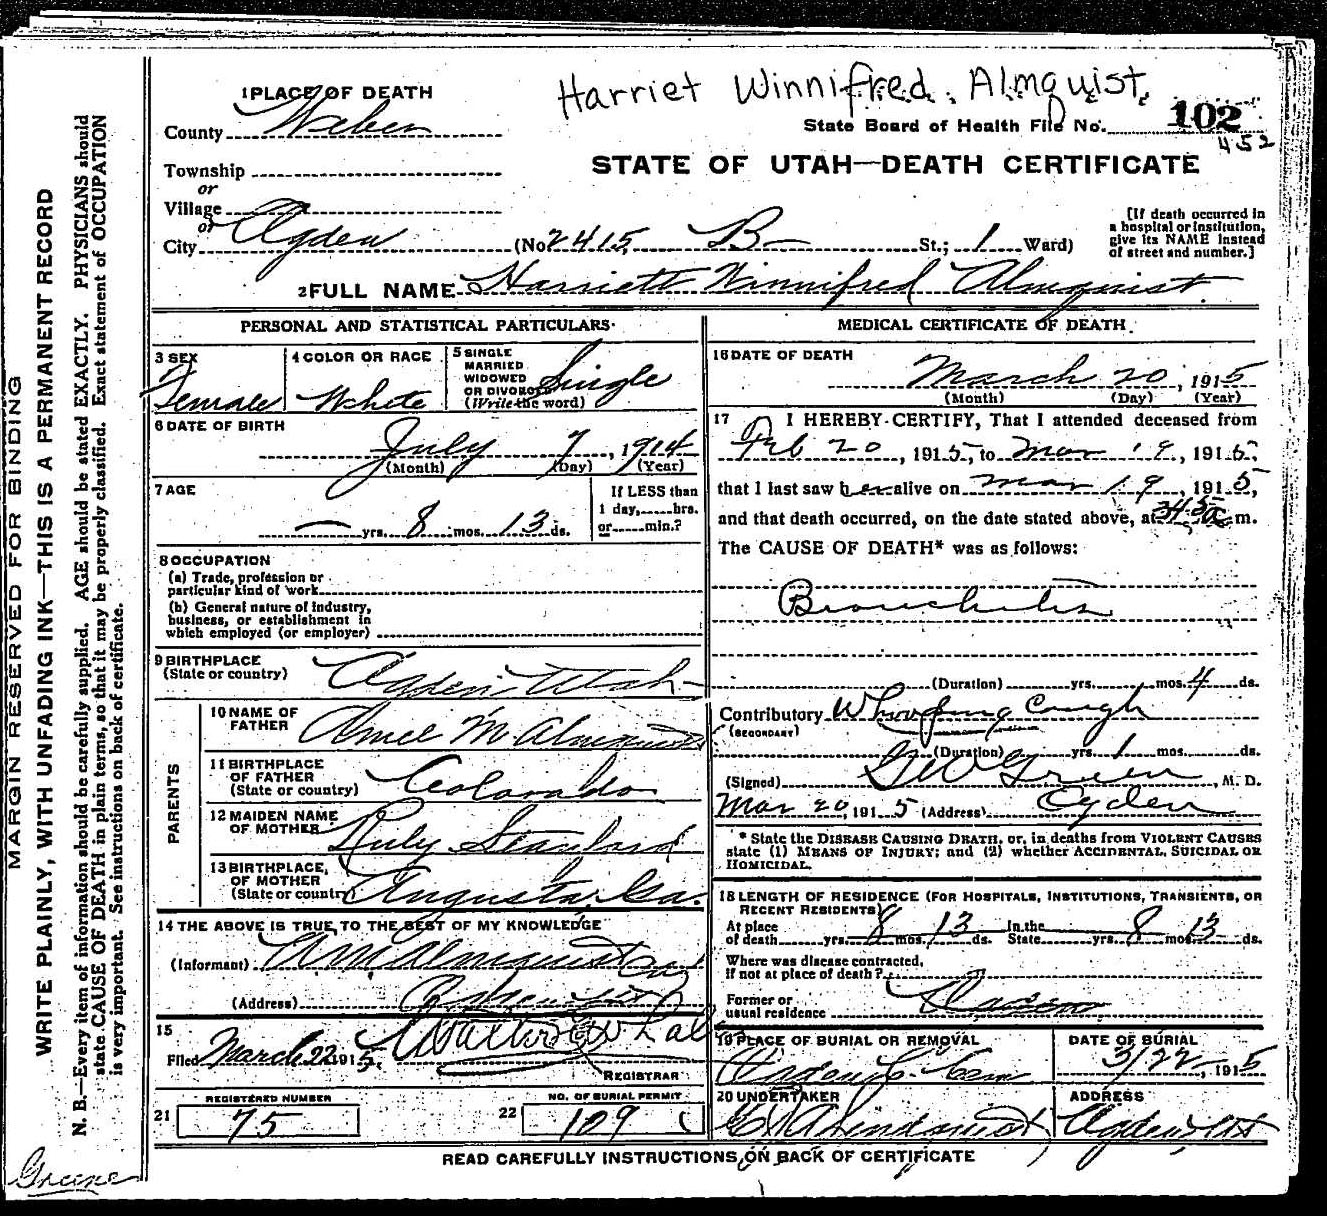 Harriet Winnifred Almquist
1 PLACE OF DEATH
County Weber
State Board of Health File No. 102
452
STATE OF UTAH—DEATH CERTIFICATE
Township
or
Village
or
City Ogden (No 2415 B St.; 1 Ward)
[If death occurred in a hospital or institution, give its NAME instead of street and number.]
2 FULL NAME Harriett Winnifred Almquist
PERSONAL AND STATISTICAL PARTICULARS
3 SEX Female
4 COLOR OR RACE White
5 SINGLE MARRIED WIDOWED OR DIVORCED (Write the word) Single
6 DATE OF BIRTH
July 7, 1914
(Month) (Day) (Year)
7 AGE
— yrs. 8 mos. 13 ds.
If LESS than
1 day, hrs.
or min.?
8 OCCUPATION
(a) Trade, profession or
particular kind of work
(b) General nature of industry,
business, or establishment in
which employed (or employer)
9 BIRTHPLACE
(State or country) Ogden Utah
PARENTS
10 NAME OF
FATHER M Almquist
11 BIRTHPLACE
OF FATHER
(State or country) Colorado
12 MAIDEN NAME
OF MOTHER Ruby
13 BIRTHPLACE
OF MOTHER
(State or country) Augusta Ga.
14 THE ABOVE IS TRUE TO THE BEST OF MY KNOWLEDGE
(Informant) A M Almquist
(Address)
15
Filed March 22 1915
REGISTRAR
REGISTERED NUMBER
21 75
NO. OF BURIAL PERMIT
22 109
MEDICAL CERTIFICATE OF DEATH
16 DATE OF DEATH
March 20, 1915
(Month) (Day) (Year)
17 I HEREBY CERTIFY, That I attended deceased from
Feb 20, 1915, to Mar 19, 1915,
that I last saw her alive on Mar 19, 1915,
and that death occurred, on the date stated above, at m.
The CAUSE OF DEATH* was as follows:
Bronchitis
(Duration) yrs. mos. 4 ds.
Contributory Whooping Cough
(SECONDARY)
(Duration) yrs. 1 mos. ds.
(Signed) G W Green, M. D.
Mar 20, 1915 (Address) Ogden
* State the DISEASE CAUSING DEATH, or, in deaths from VIOLENT CAUSES
state (1) MEANS OF INJURY; and (2) whether ACCIDENTAL, SUICIDAL OR
HOMICIDAL.
18 LENGTH OF RESIDENCE (FOR HOSPITALS, INSTITUTIONS, TRANSIENTS, OR
RECENT RESIDENTS)
At place In the
of death yrs. 8 mos. 13 ds. State yrs. 8 mos. 13 ds.
Where was disease contracted,
if not at place of death?
Former or
usual residence
19 PLACE OF BURIAL OR REMOVAL
Ogden C. Cem
DATE OF BURIAL
3/22, 1915
20 UNDERTAKER
ADDRESS
Ogden Ut
READ CAREFULLY INSTRUCTIONS ON BACK OF CERTIFICATE
MARGIN RESERVED FOR BINDING
WRITE PLAINLY, WITH UNFADING INK—THIS IS A PERMANENT RECORD
N. B.—Every item of information should be carefully supplied. AGE should be stated EXACTLY. PHYSICIANS should
state CAUSE OF DEATH in plain terms, so that it may be properly classified. Exact statement of OCCUPATION
is very important. See instructions on back of certificate.
Greene